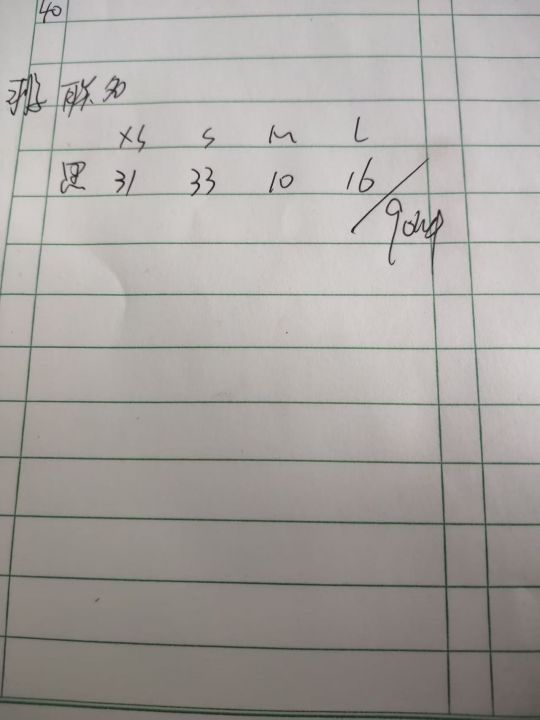 40
XS S M L
黑 31 33 10 16
90件